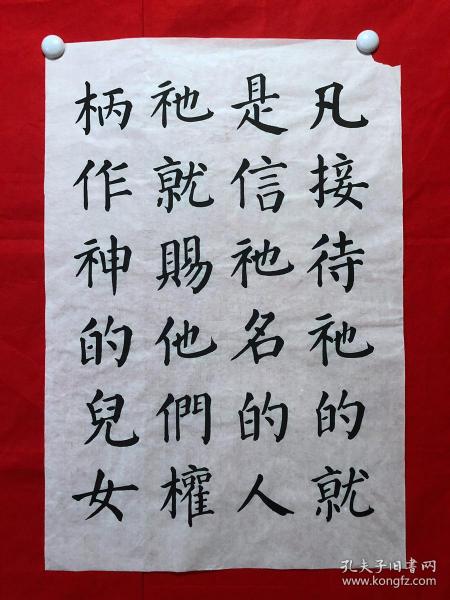 凡接待祂的就
是信祂名的人
祂就賜他們權
柄作神的兒女
孔夫子旧书网
www.kongfz.com